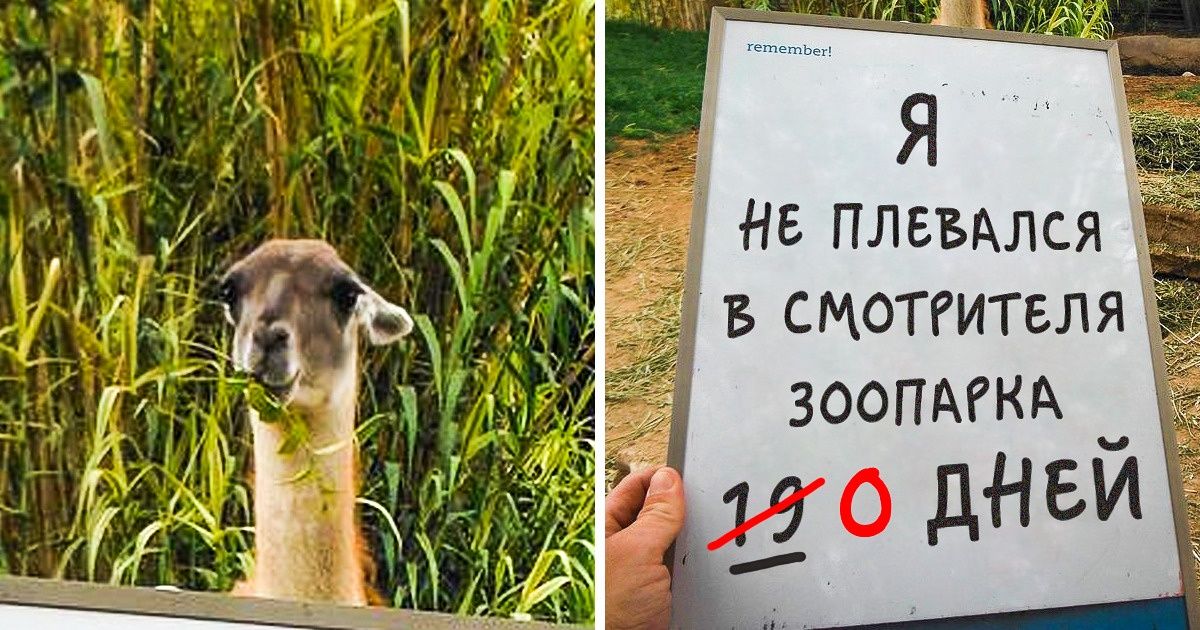 remember!
Я
НЕ ПЛЕВАЛСЯ
В СМОТРИТЕЛЯ
ЗООПАРКА
19 0 ДНЕЙ